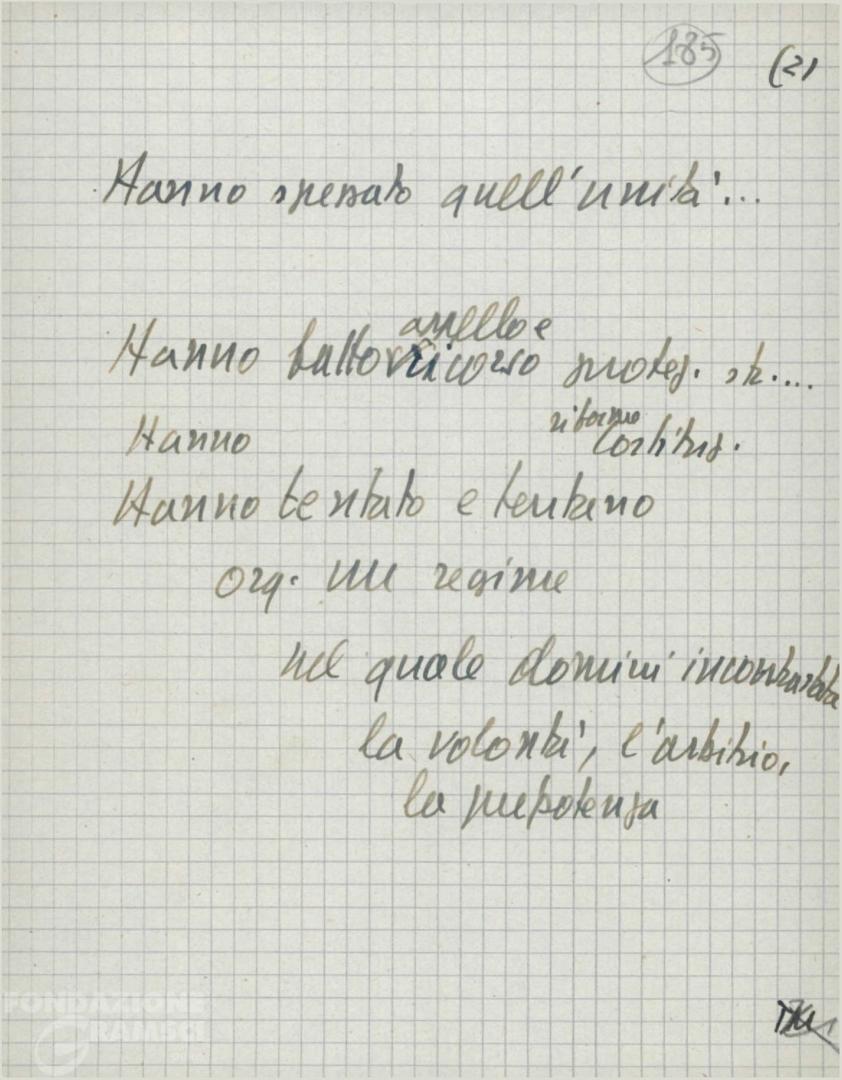 185 (2)
Hanno spezzato quell'unità...
appello e
Hanno fatto ricorso proteg. str....
riforme
Hanno Costituz.
Hanno tentato e tentano
org. un regime
nel quale domini incontrastata
la volontà, l'arbitrio,
la prepotenza
FONDAZIONE
GRAMSCI